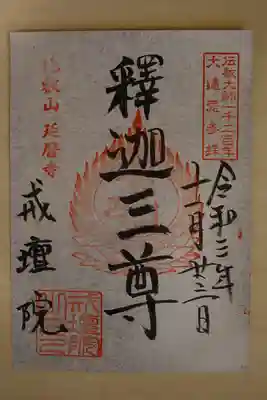 伝教大師一千二百年
大遠忌参拝
令和三年
十一月廿三日
釋迦三尊
比叡山 延暦寺
戒壇院